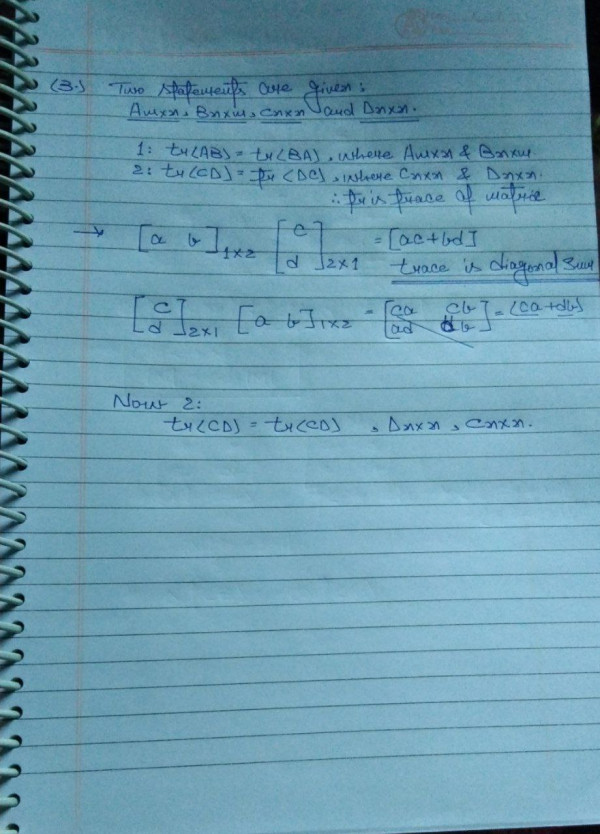 (3.) Two statements are given:
Amxn, Bnxm, Cnxn and Dnxn.
1: tr(AB) = tr(BA), where Amxn & Bnxm.
2: tr(CD) = tr(DC), where Cnxn & Dnxn.
∴ tr is trace of matrix
→ [a b]1x2 [c d]2x1 = [ac+bd]
trace is diagonal sum
[c d]2x1 [a b]1x2 = [ca cb ad db] = (ca+db)
Now 2:
tr(CD) = tr(CD) , Dnxn , Cnxn.